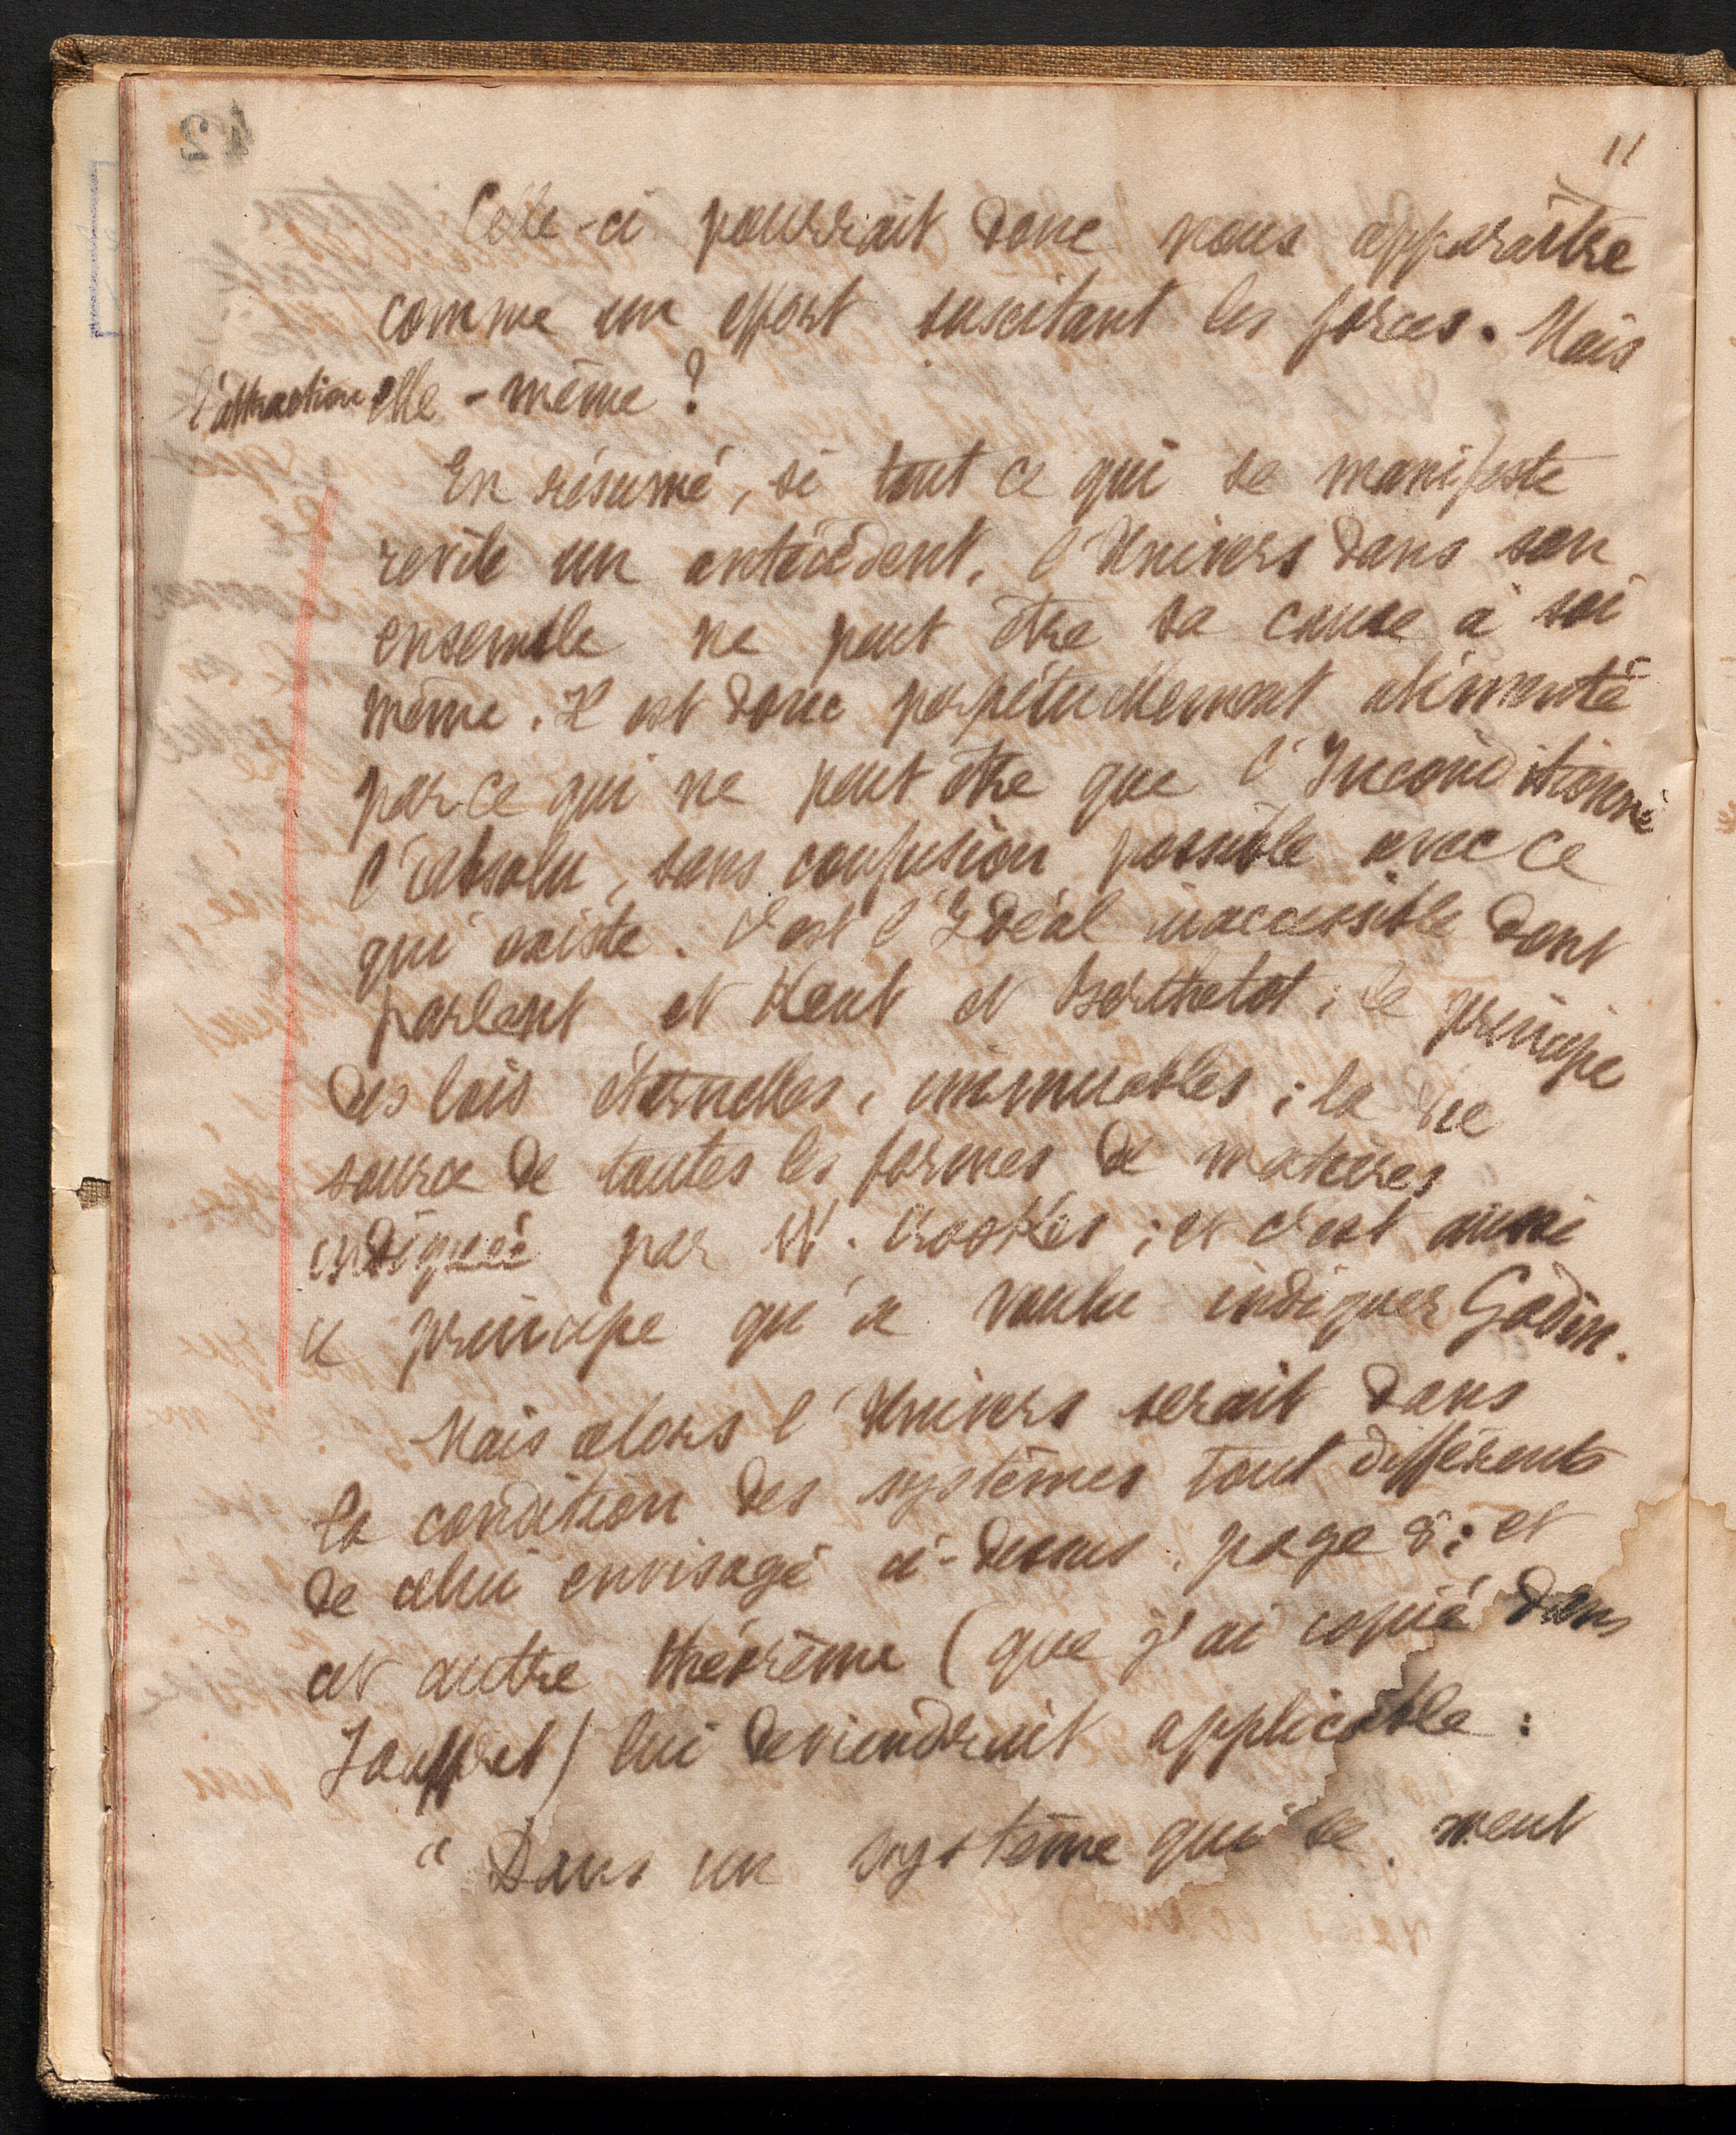 11
Celle-ci pourrait donc nous apparaître
comme un effort suscitant les forces. Mais
l'attraction elle-même ?
En résumé, si tout ce qui se manifeste
révèle un antécédent, l'Univers dans son
ensemble ne peut être sa cause à soi
même. Il est donc perpétuellement alimenté
par ce qui ne peut être que l'Inconditionné
l'absolu, sans confusion possible avec ce
qui existe. C'est l'Idéal inaccessible dont
parlent et Kant et Berthelot ; le principe
des lois éternelles, immuables ; la vie
source de toutes les formes de matières
indiquée par W. Crookes ; et c'est aussi
le principe qu'a voulu indiquer Godin.
Mais alors l'Univers serait dans
la condition des systèmes tout différents
de celui envisagé ci-dessus, page 8 ; et
cet autre théorème (que j'ai copié dans
Jouffret) lui deviendrait applicable :
"Dans un système qui se meut